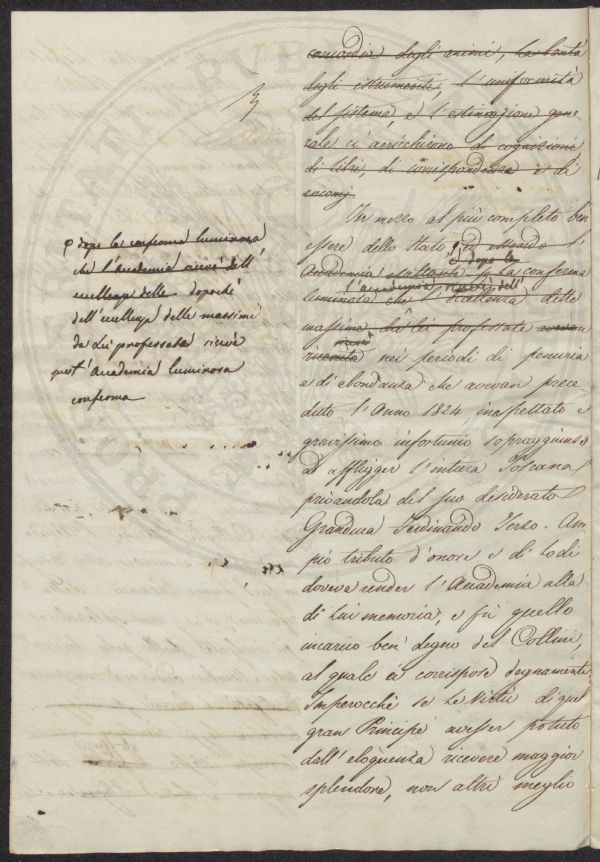 concordia degli animi, la bontà
degli istrumenti, l'uniformità
del sistema, e l'estimazione gene
rale ci arricchirono di cognizioni
di libri, di corrispondenze e di
encomj.
In mezzo al più completo ben
essere dello Stato, ed essendo l'
dopo la
Accademia esultante la conferma
l'accademia ricevè dell'
luminosa che l'eccellenza delle
massime da lei professate avevan
ricevè
ricevuta nei periodi di penuria
e di abondanza che avevan prece
duto l'Anno 1824, inaspettato e
gravissimo infortunio sopraggiunse
ad affligger l'intera Toscana
privandola del suo desiderato
Granduca Ferdinando Terzo. Am
pio tributo d'onore e di lodi
doveva render l'Accademia alla
di Lui memoria, e fù quello
incarico ben degno del Collini,
al quale ei corrispose degnamente
Imperocchè se le Virtù di quel
gran Principe avesser potuto
dall'eloquenza ricevere maggior
splendore, non altri meglio
dopo la conferma luminosa
che l'Accademia ricevè dell'
eccellenza delle dopochè
dell'eccellenza delle massime
da Lei professate ricevè
quest'Accademia luminosa
conferma
PVB